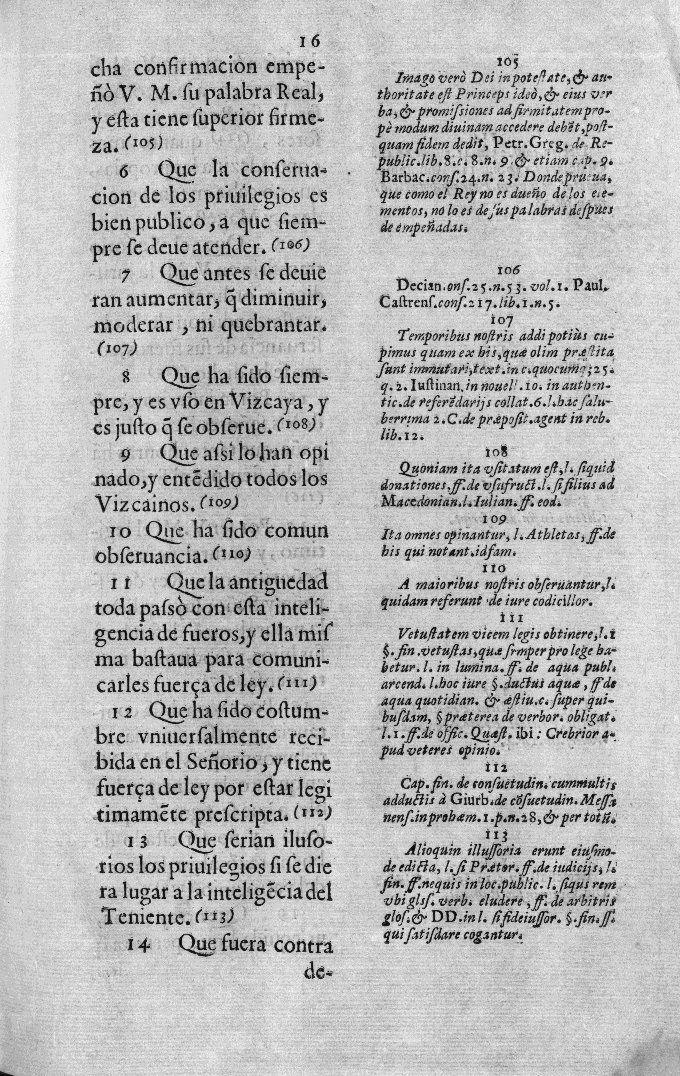 16
cha confirmacion empe-
ñò V. M. su palabra Real,
y esta tiene superior firme-
za. (105)
6 Que la conserua-
cion de los priuilegios es
bien publico, a que siem-
pre se deue atender. (106)
7 Que antes se deuie
ran aumentar, q̃ diminuir,
moderar, ni quebrantar.
(107)
8 Que ha sido siem-
pre, y es vso en Vizcaya, y
es justo q̃ se obserue. (108)
9 Que assi lo han opi
nado, y entẽdido todos los
Vizcainos. (109)
10 Que ha sido comun
obseruancia. (110)
11 Que la antiguedad
toda passò con esta inteli-
gencia de fueros, y ella mis
ma bastaua para comuni-
carles fuerça de ley. (111)
12 Que ha sido costum-
bre vniuersalmente reci-
bida en el Señorio, y tiene
fuerça de ley por estar legi
timamẽte prescripta. (112)
13 Que serian iluso-
rios los priuilegios si se die
ra lugar a la inteligẽcia del
Teniente. (113)
14 Que fuera contra
de-
105
Imago verò Dei in potestate, & au-
thoritate est Princeps ideò, & eius ver
ba, & promissiones ad firmitatem pro-
pè modum diuinam accedere debẽt, post-
quam fidem dedit, Petr. Greg. de Re-
public. lib. 8. c. 8. n. 9 & etiam cap. 9.
Barbac. cons. 24. n. 23. Donde prueua,
que como el Rey no es dueño de los ele-
mentos, no lo es de sus palabras despues
de empeñadas.
106
Decian. ons. 25. n. 53. vol. 1. Paul.
Castrens. cons. 217. lib. 1. n. 5.
107
Temporibus nostris addi potiùs cu-
pimus quam ex his, quæ olim præstita
sunt immutari, text. in c. quocumq; 25.
q. 2. Iustinan. in nouell. 10. in authen-
tic. de referẽdarijs collat. 6. l. hac salu-
berrima 2. C. de præposit. agent in reb.
lib. 12.
108
Quoniam ita vsitatum est, l. siquid
donationes, ff. de vsufruct. l. si filius ad
Macedonian. l. Iulian. ff. eod.
109
Ita omnes opinantur, l. Athletas, ff. de
his qui notant. idfam.
110
A maioribus nostris obseruantur, l.
quidam referunt de iure codicillor.
111
Vetustatem vicem legis obtinere, l. 1
§. fin. vetustas, quæ semper pro lege ha-
betur. l. in lumina. ff. de aqua publ.
arcend. l. hoc iure §. ductus aquæ, ff de
aqua quotidian. & æstiu. c. super qui-
busdam, § præterea de verbor. obligat.
l. 1. ff. de offic. Quæst. ibi: Crebrior a-
pud veteres opinio.
112
Cap. fin. de consuetudin. cum multis
adductis à Giurb. de cõsuetudin. Messa
nens. in proœm. 1. p. n. 28, & per totũ.
113
Alioquin illussoria erunt eiusmo-
de edicta, l. si Prætor. ff. de iudicijs, l.
fin. ff. nequis in loc. public. l. siqus rem
vbi glss. verb. eludere, ff. de arbitris
glos. & DD. in l. si fideiussor. §. fin. ff.
qui satisdare cogantur.